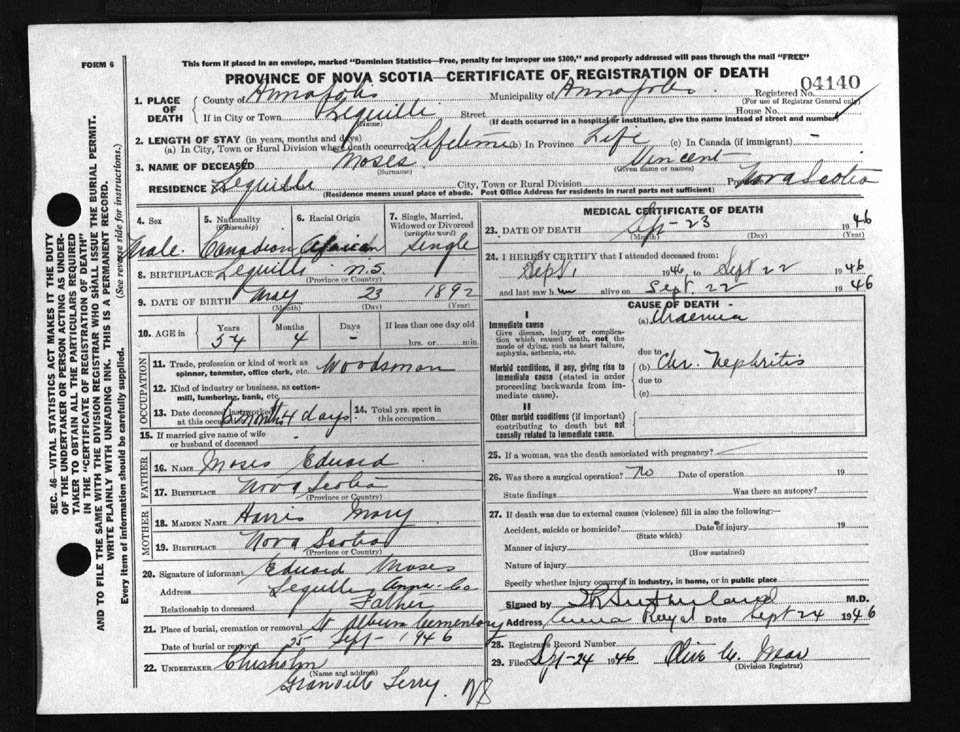 FORM 6
This form if placed in an envelope, marked "Dominion Statistics—Free, penalty for improper use $300," and properly addressed will pass through the mail "FREE"
PROVINCE OF NOVA SCOTIA—CERTIFICATE OF REGISTRATION OF DEATH
04140
1. PLACE OF DEATH
County of Annapolis Municipality of Annapolis Registered No.
(For use of Registrar General only)
If in City or Town Lequille Street House No.
(Name) (If death occurred in a hospital or institution, give the name instead of street and number)
2. LENGTH OF STAY (in years, months and days)
(a) In City, Town or Rural Division where death occurred Lifetime (b) In Province Life (c) In Canada (if immigrant) -
3. NAME OF DECEASED Moses Vincent
(Surname) (Given name or names)
RESIDENCE Lequille City, Town or Rural Division Nova Scotia
(Residence means usual place of abode. Post Office Address for residents in rural parts not sufficient)
4. Sex 5. Nationality (Citizenship) 6. Racial Origin 7. Single, Married, Widowed or Divorced (write the word)
Male. Canadian African Single
8. BIRTHPLACE Lequille N.S.
(Province or Country)
9. DATE OF BIRTH May 23 1892
(Month) (Day) (Year)
10. AGE in Years Months Days If less than one day old
54 4 - hrs. or min.
11. Trade, profession or kind of work as spinner, teamster, office clerk, etc. Woodsman
12. Kind of industry or business, as cotton-mill, lumbering, bank, etc.
13. Date deceased last worked at this occupation 6 months 4 days 14. Total yrs. spent in this occupation
OCCUPATION
15. If married give name of wife or husband of deceased
FATHER
16. NAME Moses Eduard
17. BIRTHPLACE Nova Scotia
(Province or Country)
MOTHER
18. MAIDEN NAME Harris Mary
19. BIRTHPLACE Nova Scotia
(Province or Country)
20. Signature of informant Eduard Moses
Address Lequille Anna. Co
Relationship to deceased Father
21. Place of burial, cremation or removal St Albun Cementary
Date of burial or removal 25 Sept - 1946
22. UNDERTAKER Chisholm
(Name and address)
Granville Ferry. NS
MEDICAL CERTIFICATE OF DEATH
23. DATE OF DEATH Sept - 23 1946
(Month) (Day) (Year)
24. I HEREBY CERTIFY that I attended deceased from:
Sept 1 1946, to Sept 22 1946
and last saw him alive on Sept 22 1946
CAUSE OF DEATH
I
Immediate cause
Give disease, injury or complication which caused death, not the mode of dying, such as heart failure, asphyxia, asthenia, etc.
(a) Uraemia
due to
Morbid conditions, if any, giving rise to immediate cause (stated in order proceeding backwards from immediate cause).
(b) Chr. Nephritis
due to
(c)
II
Other morbid conditions (if important) contributing to death but not causally related to immediate cause.
25. If a woman, was the death associated with pregnancy?
26. Was there a surgical operation? No Date of operation 19
State findings Was there an autopsy?
27. If death was due to external causes (violence) fill in also the following:—
Accident, suicide or homicide? Date of injury 19
(State which)
Manner of injury
(How sustained)
Nature of injury
Specify whether injury occurred in industry, in home, or in public place
Signed by Sutherland M.D.
Address Anna Royal Date Sept 24 1946
28. Registrar's Record Number
29. Filed Sept-24 1946 Olive
(Division Registrar)
SEC. 46—VITAL STATISTICS ACT MAKES IT THE DUTY
OF THE UNDERTAKER OR PERSON ACTING AS UNDER-
TAKER TO OBTAIN ALL THE PARTICULARS REQUIRED
IN THE "CERTIFICATE OF REGISTRATION OF DEATH"
AND TO FILE THE SAME WITH THE DIVISION REGISTRAR WHO SHALL ISSUE THE BURIAL PERMIT.
WRITE PLAINLY WITH UNFADING INK. THIS IS A PERMANENT RECORD.
Every item of information should be carefully supplied. (See reverse side for instructions.)